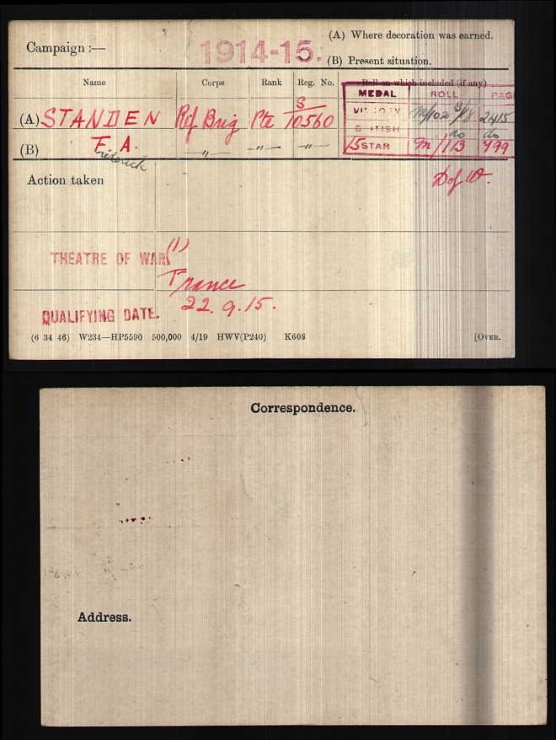 Campaign :—
1914-15.
(A) Where decoration was earned.
(B) Present situation.
Name Corps Rank Reg. No. Roll on which included (if any)
MEDAL ROLL PAGE
(A) STANDEN Rif Brig Pte S/10560
VICTORY 2415
(B) F. A. " -"- -"-
Frederick
BRITISH do do
15 STAR 999
Action taken
D of W.
THEATRE OF WAR (1)
France
QUALIFYING DATE. 22.9.15.
(6 34 46) W234—HP5590 500,000 4/19 HWV(P240) K608 [OVER.
Correspondence.
Address.